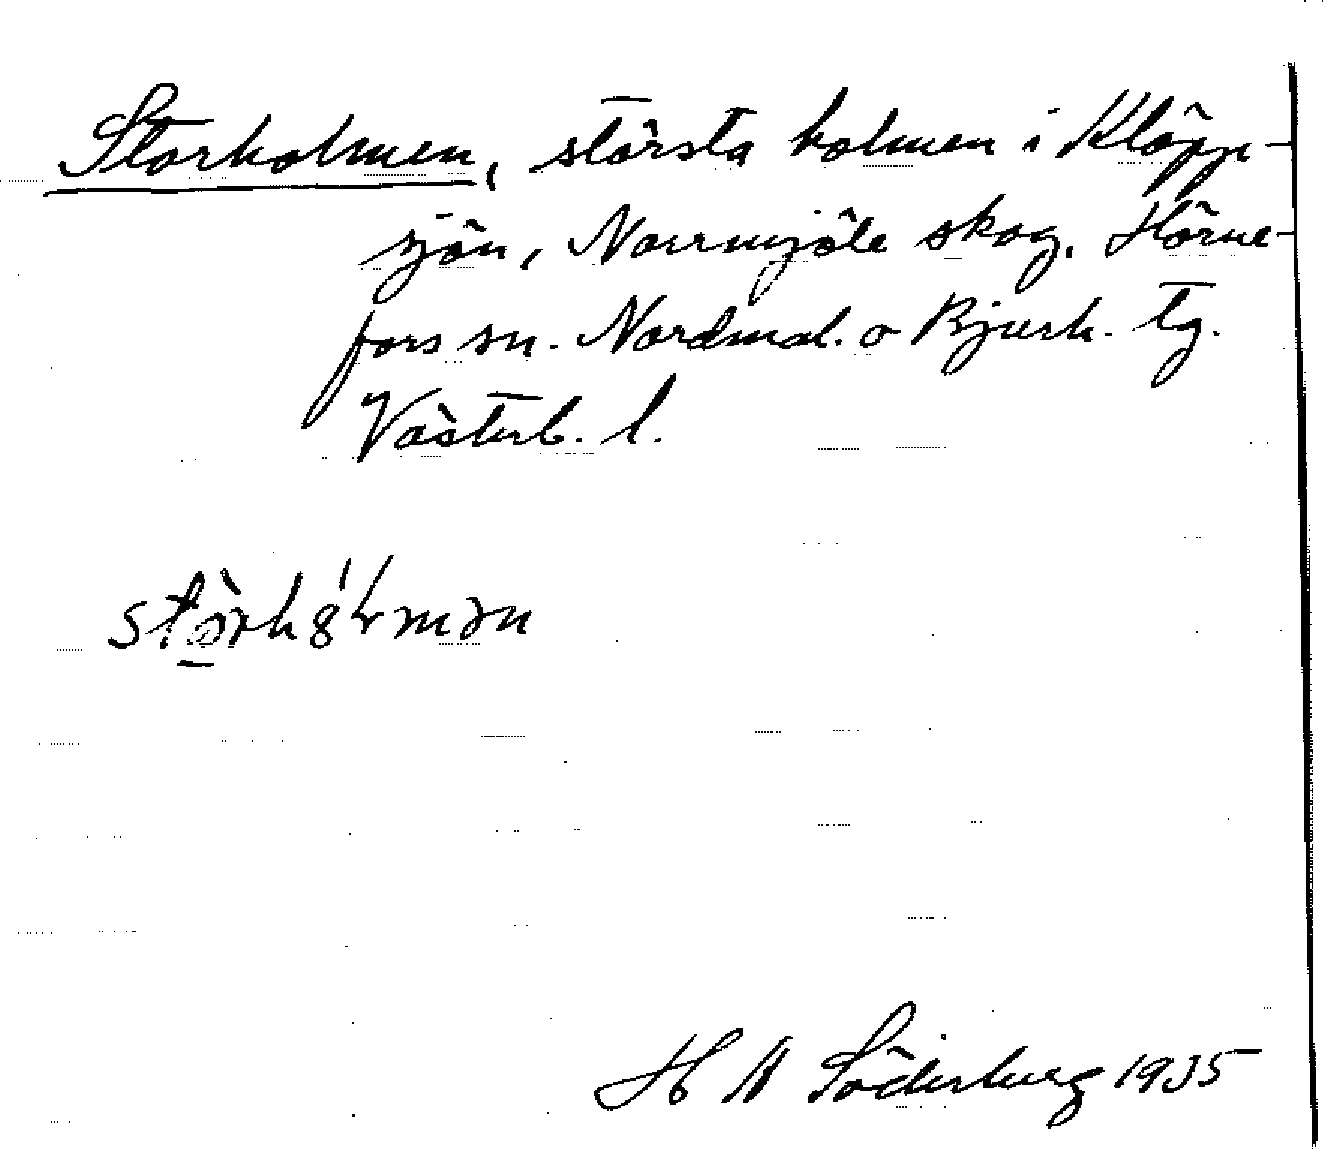 Storholmen, största holmen i Kläpp-
sjön, Norrmjöle skog. Hörne-
fors sn. Nordmal. o Bjurh. tg.
Västerb. l.
H A Söderberg 1935